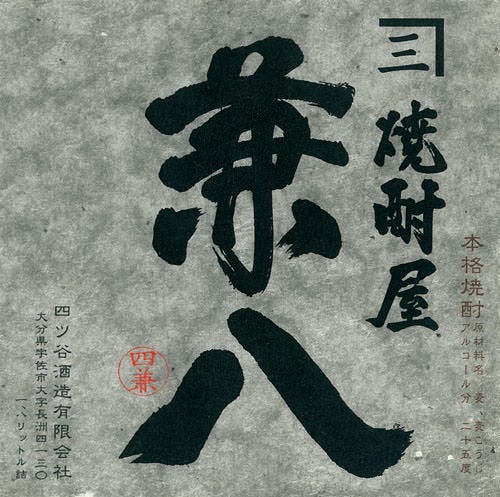 三
焼酎屋
兼八
本格焼酎
原材料名 麦、麦こうじ
アルコール分 二十五度
四兼
四ツ谷酒造有限会社
大分県宇佐市大字長洲四一三〇
一、八リットル詰